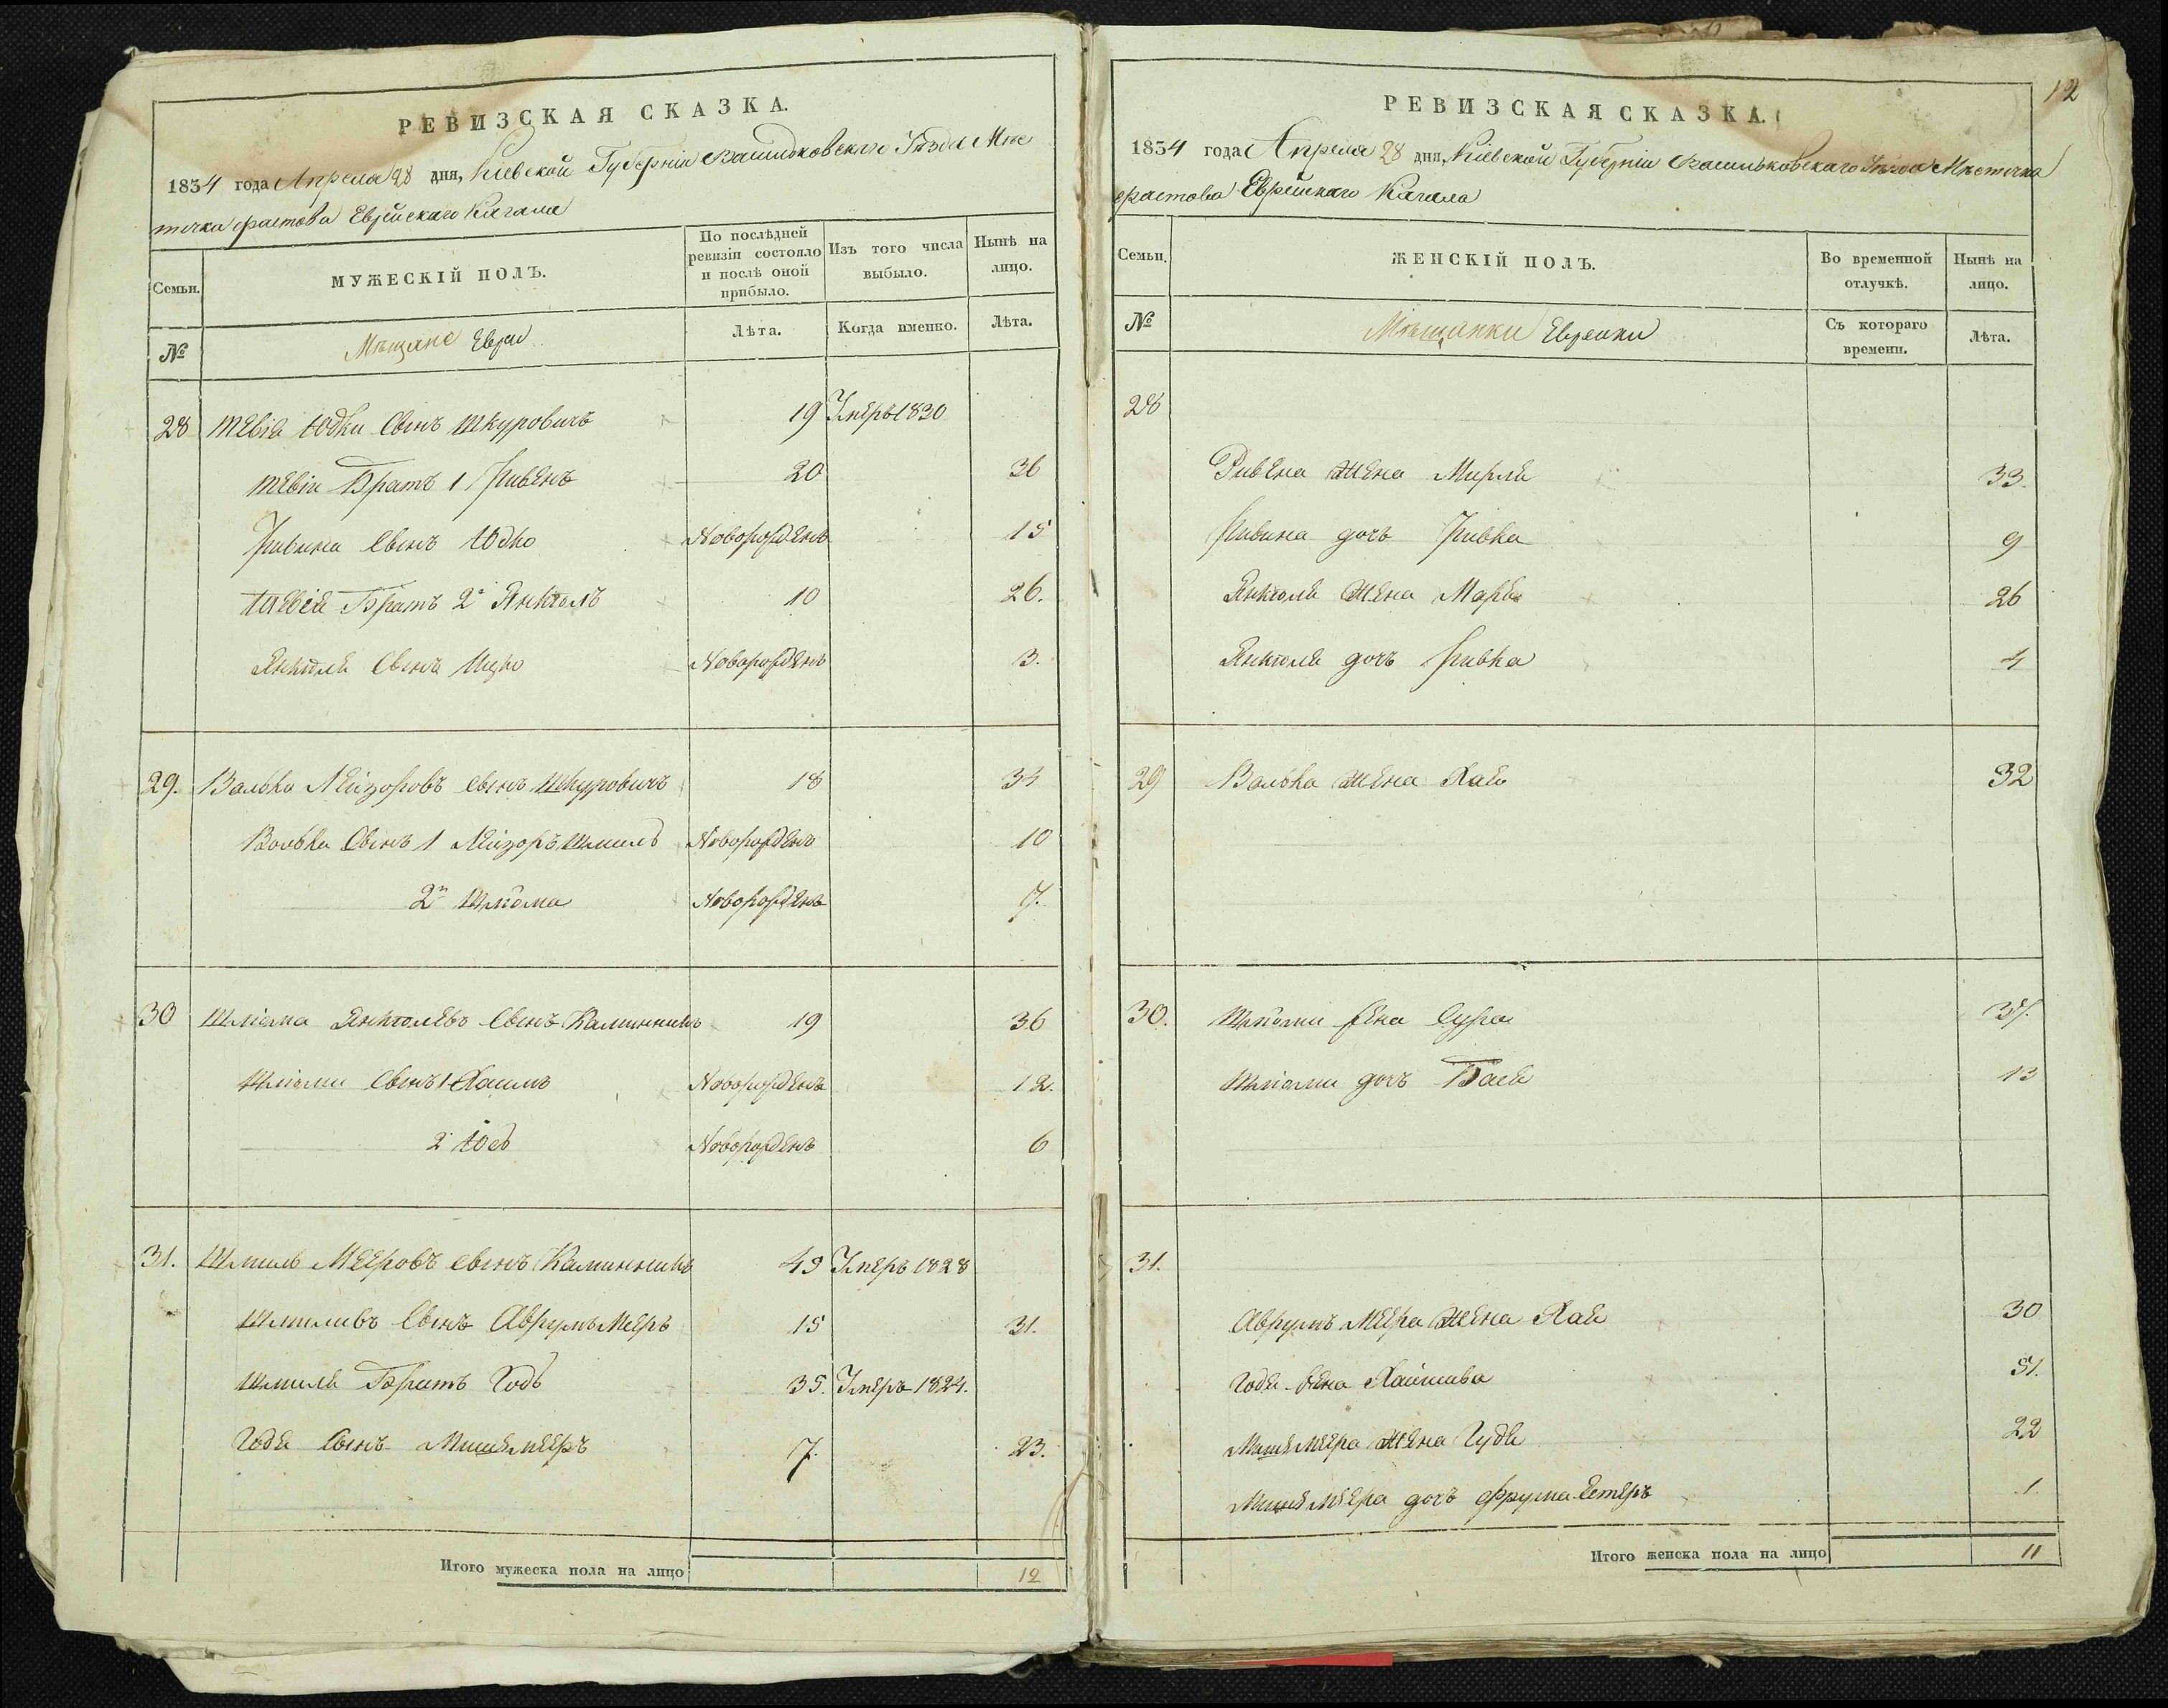 РЕВИЗСКАЯ СКАЗКА.
1834 года Апреля 28 дня, Кіевской Губерніи Васильковскаго Уѣзда Мѣс
течка Фастова Еврейскаго Кагала
Семьи.
МУЖЕСКІЙ ПОЛЪ.
По послѣдней ревизіи состояло и послѣ оной прибыло.
Изъ того числа выбыло.
Нынѣ на лицо.
№
Мѣщане Евреи
Лѣта.
Когда именно.
Лѣта.
28 Тевія Юдки Сынъ Шкуровичъ 19 Умеръ 1830
Тевіи Братъ 1 Ривенъ 20 36
Ривина Сынъ Юдко Новорожденъ 15
Тевіе Братъ 2й Янкель 10 26.
Янкеля Сынъ Ицко Новорожденъ 3.
29. Волько Лейзоровъ Сынъ Шкуровичъ 18 34
Волька Сынъ 1 Лейзоръ Шмиль Новорожденъ 10
2й Шліома Новорожденъ 7.
30 Шліома Янкелевъ Сынъ Калинникъ 19 36
Шліоми Сынъ 1 Хаимъ Новорожденъ 12.
2 Юсь Новорожденъ 6
31. Шмиль Мееровъ Сынъ Калинникъ 49 Умеръ 1828
Шмилевъ Сынъ Аврумъ Мееръ 15 31.
Шмиля Братъ Годь 35. Умеръ 1824.
Годя Сынъ Мишемееръ 7. 23.
Итого мужеска пола на лицо 12
12
РЕВИЗСКАЯ СКАЗКА.
1834 года Апреля 28 дня, Кіевской Губерніи Васильковскаго Уѣзда Мѣстечка
Фастова Еврейскаго Кагала
Семьи.
ЖЕНСКІЙ ПОЛЪ.
Во временной отлучкѣ.
Нынѣ на лицо.
№
Мѣщанки Еврейки
Съ котораго времени.
Лѣта.
28
Ривена Жена Мирля 33.
Ривина дочь Ривка 9
Янкеля Жена Маря 26
Янкеля дочь Ривка 4
29 Волька Жена Хая 32
30. Шліоми Жена Сура 37.
Шліоми дочь Бася 13
31.
Аврумъ Меера Жена Хая 30
Годя Жена Хайтива 51.
Мишемеера Жена Гудя 22
Мишемеера дочь Фрума Естеръ 1
Итого женска пола на лицо 11